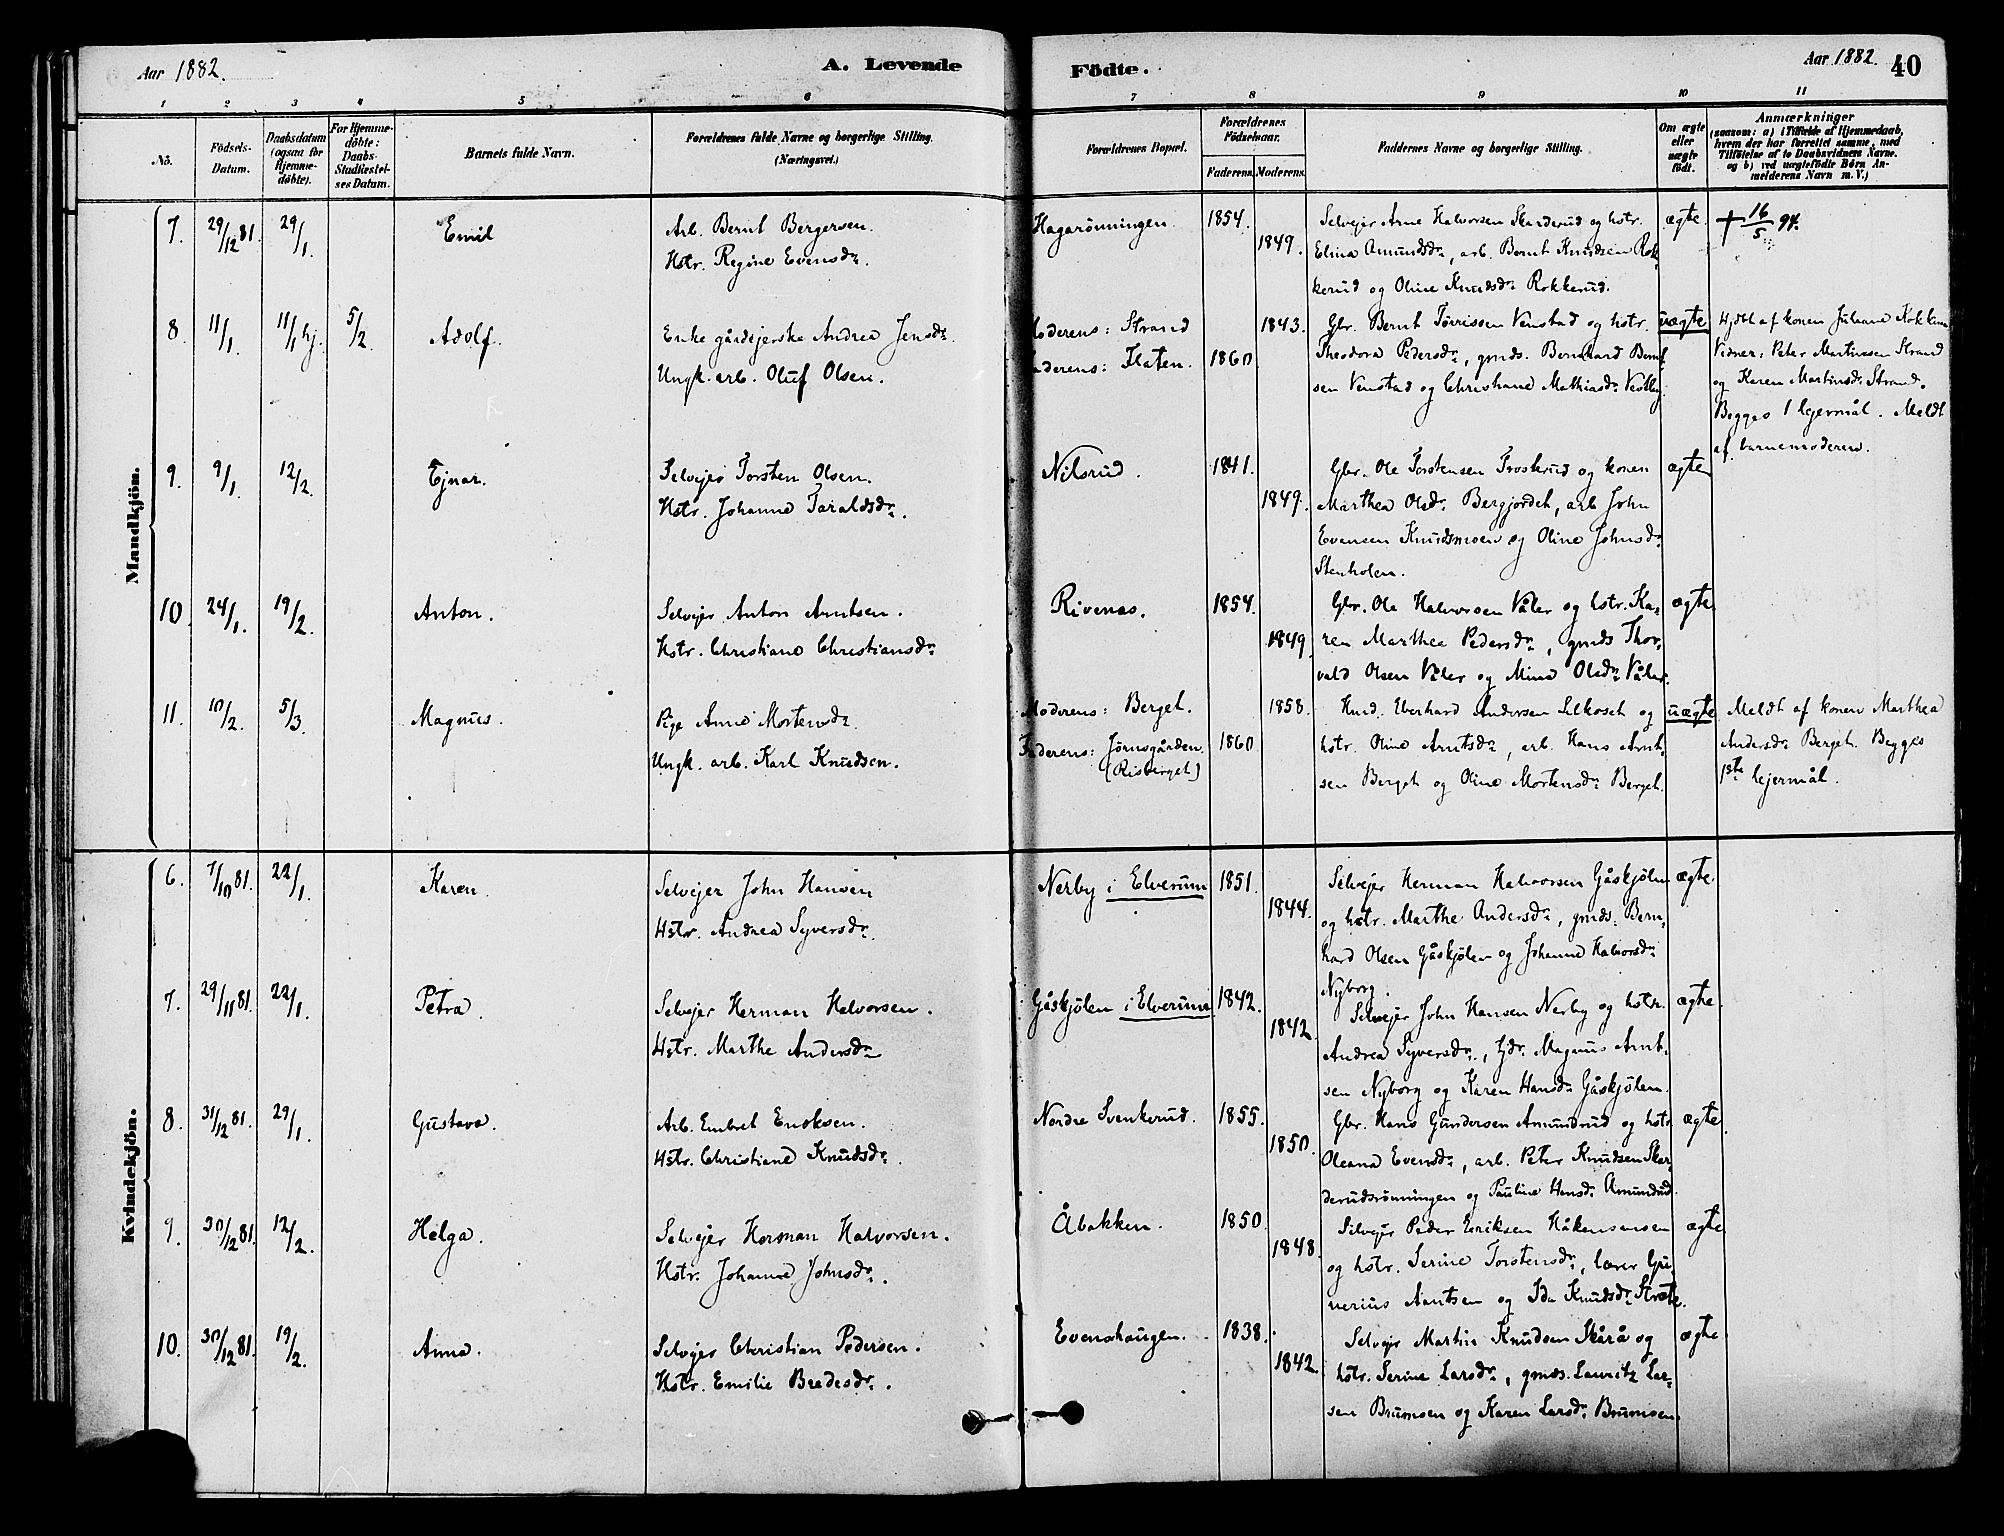 Aar 1882.
A. Levende
Födte.
Aar 1882.
40
1 2 3 4 5 6 7 8 9 10 11
No.
Födsels-Datum.
Daabsdatum (ogsaa for Hjemme-döbte).
For Hjemme-döbte: Daabs-Stadfæstel-ses Datum.
Barnets fulde Navn.
Forældrenes fulde Navne og borgerlige Stilling.
(Næringsvei.)
Forældrenes Bopæl.
Forældrenes Födselsaar.
Faderens. Moderens.
Faddernes Navne og borgerlige Stilling.
Om ægte eller uægte födt.
Anmærkninger
(saasom: a) i Tilfælde af Hjemmedaab,
hvem der har forrettet samme, med
Tilföielse af to Daabsvidners Navne.
og b) ved uægtefödte Börn An-
melderens Navn m. V.)
Mandkjön.
7. 29/12 81. 29/1. Emil
Arb. Bernt Bergersen.
Hstr. Regine Evensdr.
Hagarönningen 1854. 1849.
Selvejer Arne Halvorsen Skarderud og hstr.
Elina Amundsdr., arb. Bernt Knudsen Rok-
kerud og Oline Knudsdr. Rokkerud.
ægte. + 16/5 94.
8. 11/1. 11/1 hj. 5/2. Adolf.
Enke gårdejerske Andrea Jensdr.
Ungk. arb. Oluf Olsen.
Moderens: Strand 1843.
Faderens: Flaten. 1860
Gbr. Bernt Törrissen Venstad og hstr.
Theodora Pedersdr., gmds. Bernhard Bernt-
sen Venstad og Christiane Mathiasdr. Vestby.
uægte
Hjdbt af konen Juliane
Vidner: Peter Martinssen Strand
og Karen Martinsdr. Strand.
Begges 1 lejermål. Meldt
af barnemoderen.
9. 9/1. 12/2. Ejnar.
Selvejer Torsten Olsen.
Hstr. Johanne Taraldsdr.
Nilsrud. 1841. 1849.
Gbr. Ole Torstensen Troskerud og konen
Marthea Olsdr. Bergjordet, arb John
Evensen Knudsmoen og Oline Johnsdr.
Stenholen.
ægte
10. 24/1. 19/2. Anton.
Selvejer Anton Arntsen.
Hstr. Christiane Christiansdr.
Rivenes. 1854. 1849
Gbr. Ole Halvorsen Våler og hstr. Ka-
ren Marthea Pedersdr., gmds Thor-
vald Olsen Våler og Mina Olsdr. Våler.
ægte
11. 10/2. 5/3. Magnus.
Pige Anne Mortensdr.
Ungk. arb. Karl Knudsen.
Moderens: Berget. 1858.
Faderens: Jörnsgården. (Risberget) 1860
Husd. Eberhard Andersen Lilkoset og
hstr. Oline Arntsdr., arb. Hans Arnt-
sen Berget og Oline Mortensdr. Berget.
uægte
Meldt af konen Marthea
Andersdr. Berget. Begges
1ste lejermål.
Kvindekjön.
6. 7/10 81. 22/1. Karen.
Selvejer John Hansen
Hstr. Andrea Syversdr.
Nerby i Elverum 1851. 1844.
Selvejer Herman Halvorsen Gåskjölen
og hstr. Marthe Andersdr., gmds. Bern-
hard Olsen Gåskjölen og Johanne Halvorsdr.
Nyborg.
ægte.
7. 29/11 81. 22/1. Petra.
Selvejer Herman Halvorsen.
Hstr. Marthe Andersdr.
Gåskjölen i Elverum 1842. 1842
Selvejer John Hansen Nerby og hstr.
Andrea Syversdr., Magnus Arnt-
sen Nyborg og Karen Hansdr. Gåskjölen.
ægte
8. 31/12 81. 29/1. Gustava.
Arb. Embret Enoksen.
Hstr. Christiane Knudsdr.
Nordre Svenkerud. 1855. 1850.
Gbr. Hans Gundersen Amundrud og hstr.
Oleana Evensdr., arb. Peter Knudsen Skar-
derudsrönningen og Pauline Hansdr. Amundrud.
ægte
9. 30/12 81. 12/2. Helga.
Selvejer Herman Halvorsen.
Hstr. Johanne Johnsdr.
Åbakken. 1850. 1848.
Selvejer Peder Eriksen Håkensensen
og hstr. Serine Torstensdr., lærer Gri-
nerius Arntsen og Ida Knudsdr. Stræte.
ægte
10. 30/12 81. 19/2. Anna.
Selvejer Christian Pedersen.
Hstr. Emilie Bredesdr.
Evenshaugen. 1838. 1842.
Selvejer Martin Knudsen Skårå og
hstr. Serine Larsdr., gmds. Lauritz Lar-
sen Brumoen og Karen Larsdr. Brumoen.
ægte